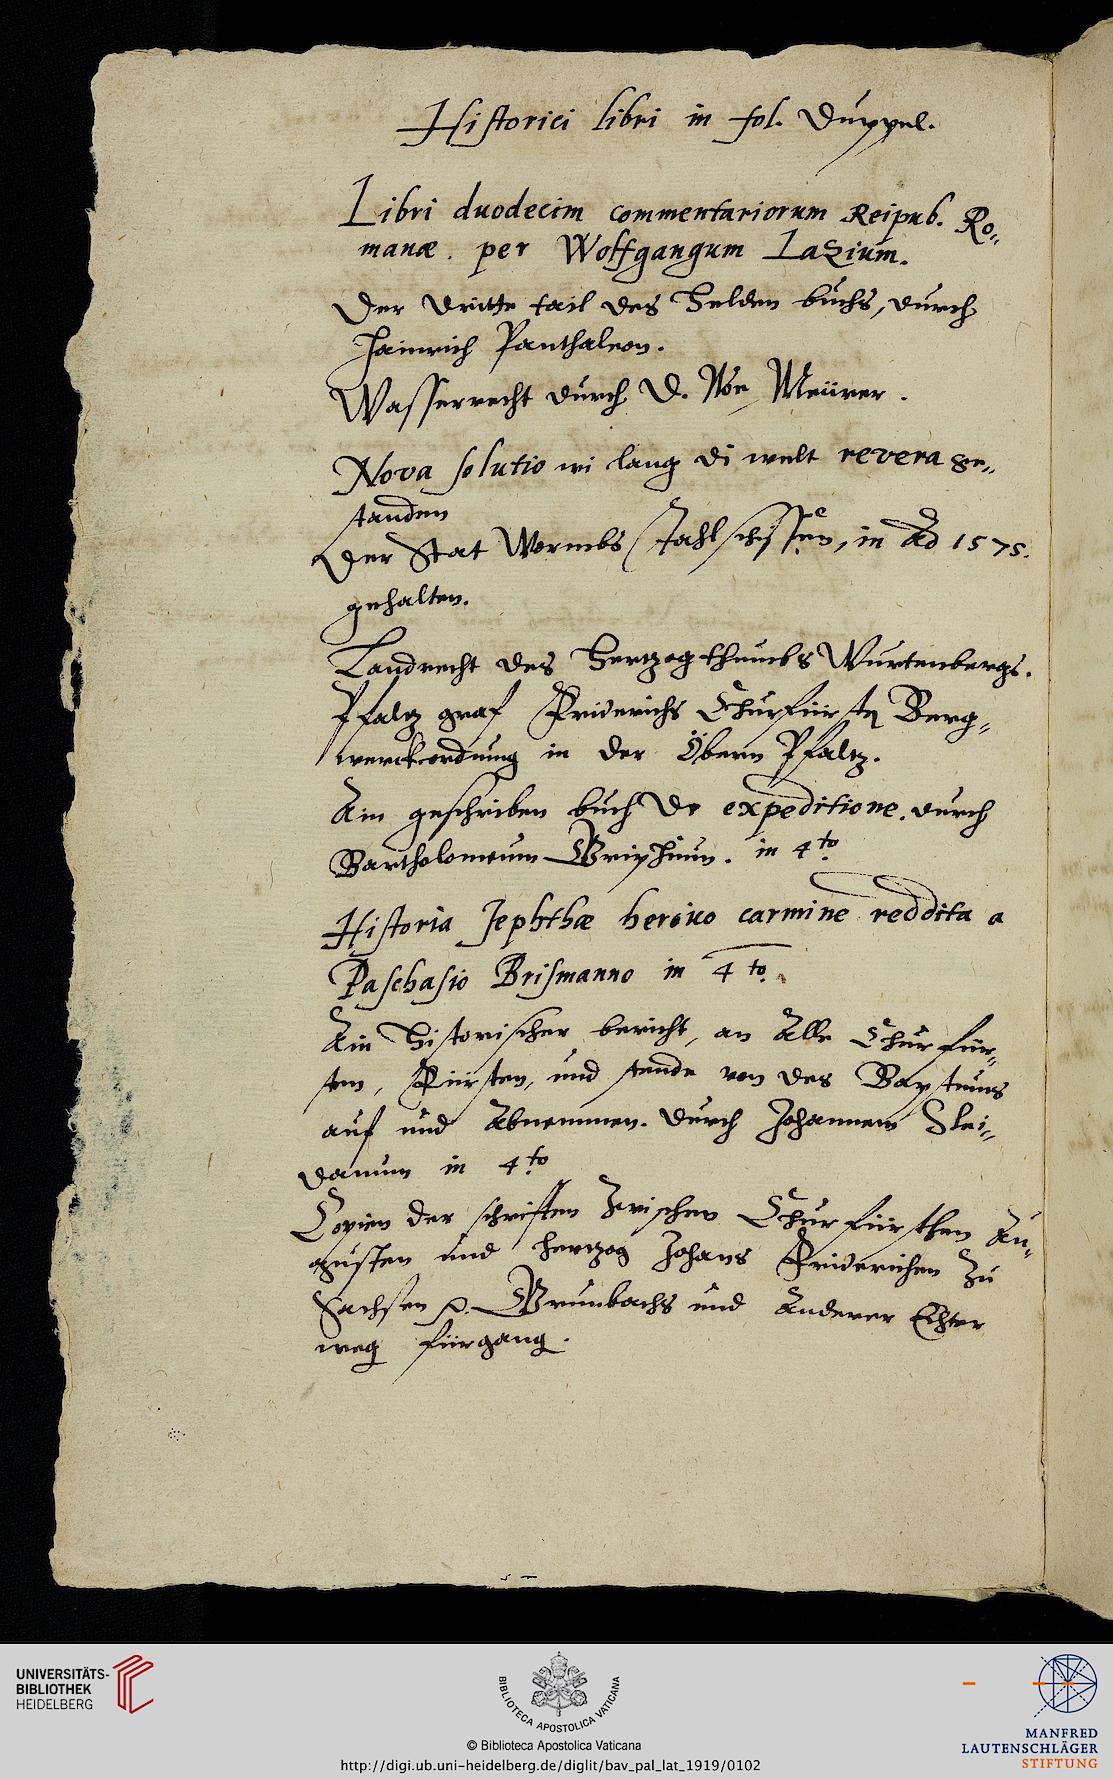 Historici libri in fol. Duppel.
Libri duodecim commentariorum Reipub. Ro=
manæ. per Wolfgangum Lazium.
Der dritte tail des Helden buchs, durch
Hainrich Panthaleon.
Wasserrecht durch D. Noe Meürer.
Nova solutio wi lang di welt revera ge=
standen
Der Stat Wormbs Stahlschissen, in Ao 1575.
gehalten.
Landrecht des Hertzogthumbs Wurtenbergs.
Pfaltzgraf Friderichs Churfürsten Berg=
werckordnung in der Obern Pfaltz.
Ain geschriben buch De expeditione. durch
Bartholomeum Griphium. in 4to.
Historia Jephthæ heroico carmine reddita a
Paschasio Brismanno in 4to.
Ain Historischer bericht, an Alle Churfür=
sten, Fürsten, und stende von des Bapstums
auf und Abnemmen. durch Johannem Slei=
danum in 4to
Copien der schriften Zwischen Churfürsthen Au=
gusten und hertzog Johans Friderichen Zu
Sachsen Grumbachs und Anderer Echter
weg fürgang.
UNIVERSITÄTS-
BIBLIOTHEK
HEIDELBERG
BIBLIOTECA APOSTOLICA VATICANA
© Biblioteca Apostolica Vaticana
http://digi.ub.uni-heidelberg.de/diglit/bav_pal_lat_1919/0102
MANFRED
LAUTENSCHLÄGER
STIFTUNG